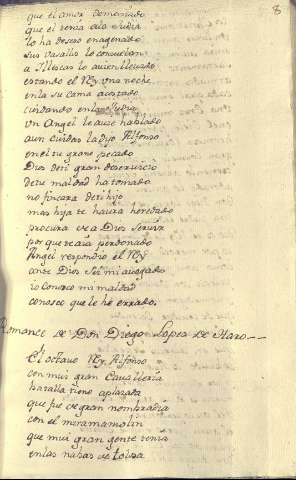 8
que ti amor demasiado
que el tenia a la Judia
lo ha desseo enagenado
sus vasallos lo consuelan
a Illescas lo avien llevado
estando el Rey una noche
en la su cama acostado
cuidando en la Judia
un Angel le ause hablado
aun cuidas la dijo Alfonso
en el tu grave pecado
Dios de ti gran deservicio
de tu maldad ha tomado
no fincara de ti hijo
mas hija te havra heredado
procura de a Dios servir
por que te aya perdonado
Angel respondio el Rey
ante Dios se mi avogado
io Conosco mi maldad
conosco que le he errado.
Romance de Don Diego Lopez de Haro
El octavo Rey Alfonso
con mui gran Cavalleria
batalla tiene aplazada
que fue de gran nombradia
con el miramamolin
que mui gran gente tenia
en las nabas de tolosa